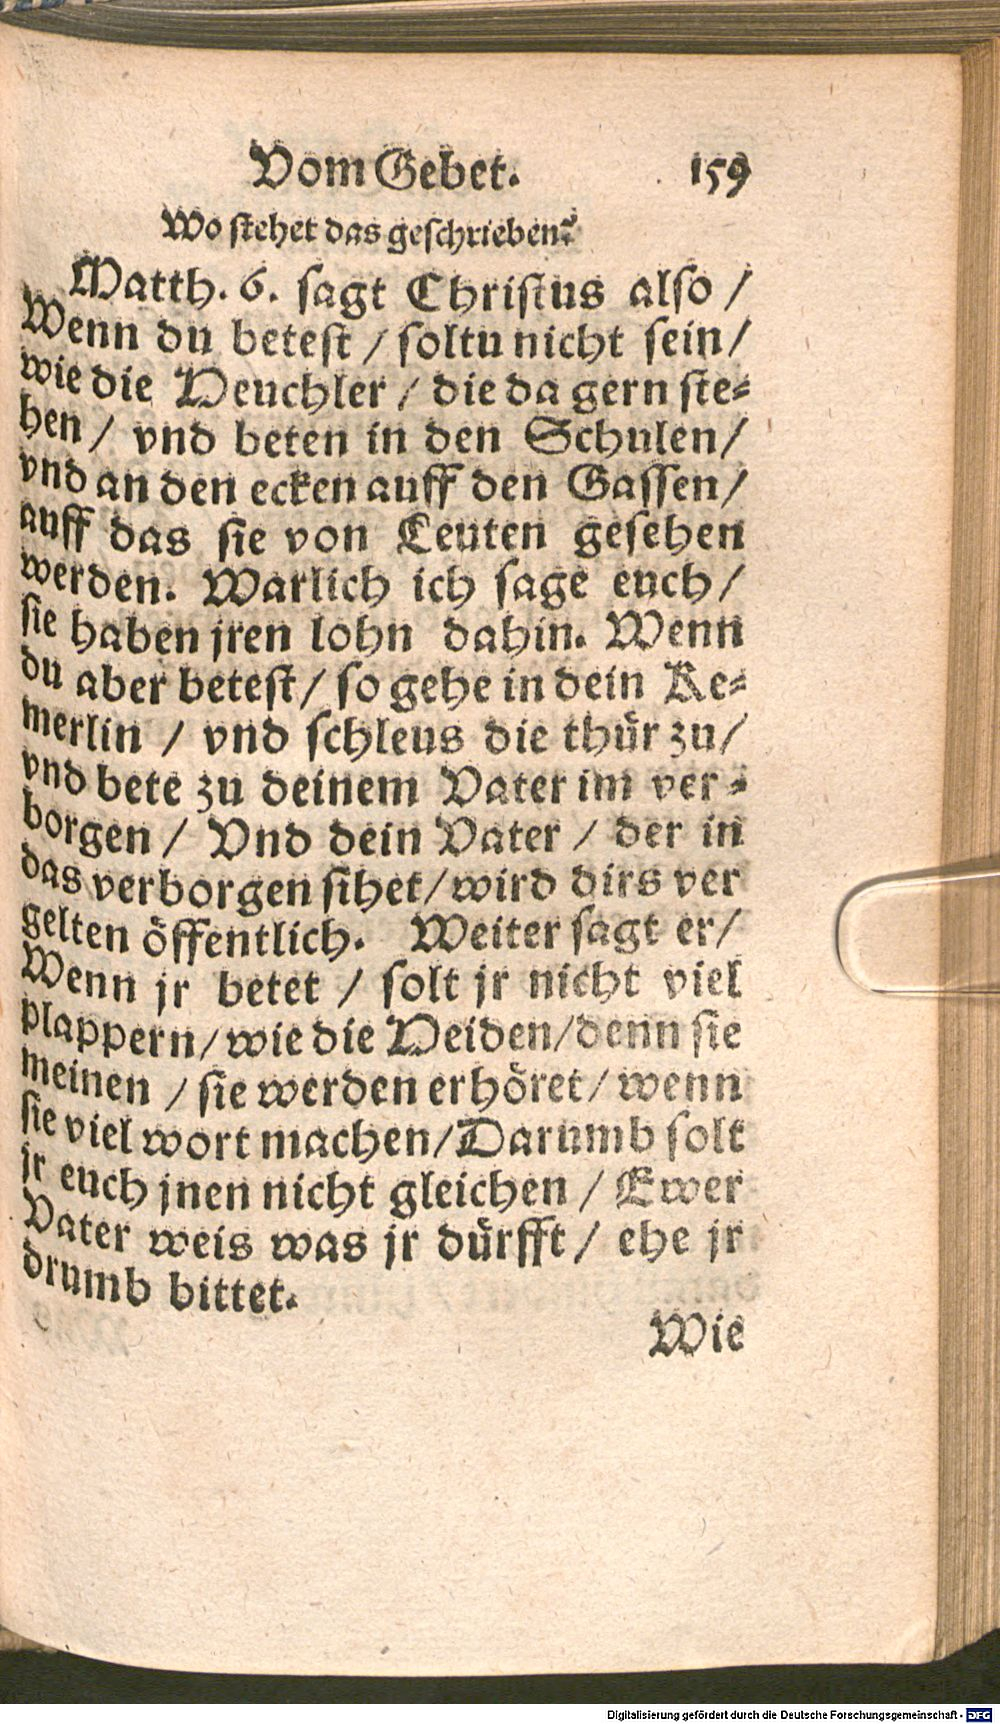 Vom Gebet. 159
Wo stehet das geschrieben?
Matth. 6. sagt Christus also /
Wenn du betest / soltu nicht sein /
wie die Heuchler / die da gern ste-
hen / vnd beten in den Schulen /
vnd an den ecken auff den Gassen /
auff das sie von Leuten gesehen
werden. Warlich ich sage euch /
sie haben jren lohn dahin. Wenn
du aber betest / so gehe in dein Ke-
merlin / vnd schleus die thür zu /
vnd bete zu deinem Vater im ver-
borgen / Vnd dein Vater / der in
das verborgen sihet / wird dirs ver
gelten öffentlich. Weiter sagt er /
Wenn jr betet / solt jr nicht viel
plappern / wie die Heiden / denn sie
meinen / sie werden erhöret / wenn
sie viel wort machen / Darumb solt
jr euch jnen nicht gleichen / Ewer
Vater weis was jr dürfft / ehe jr
drumb bittet.
Wie
Digitalisierung gefördert durch die Deutsche Forschungsgemeinschaft - DFG